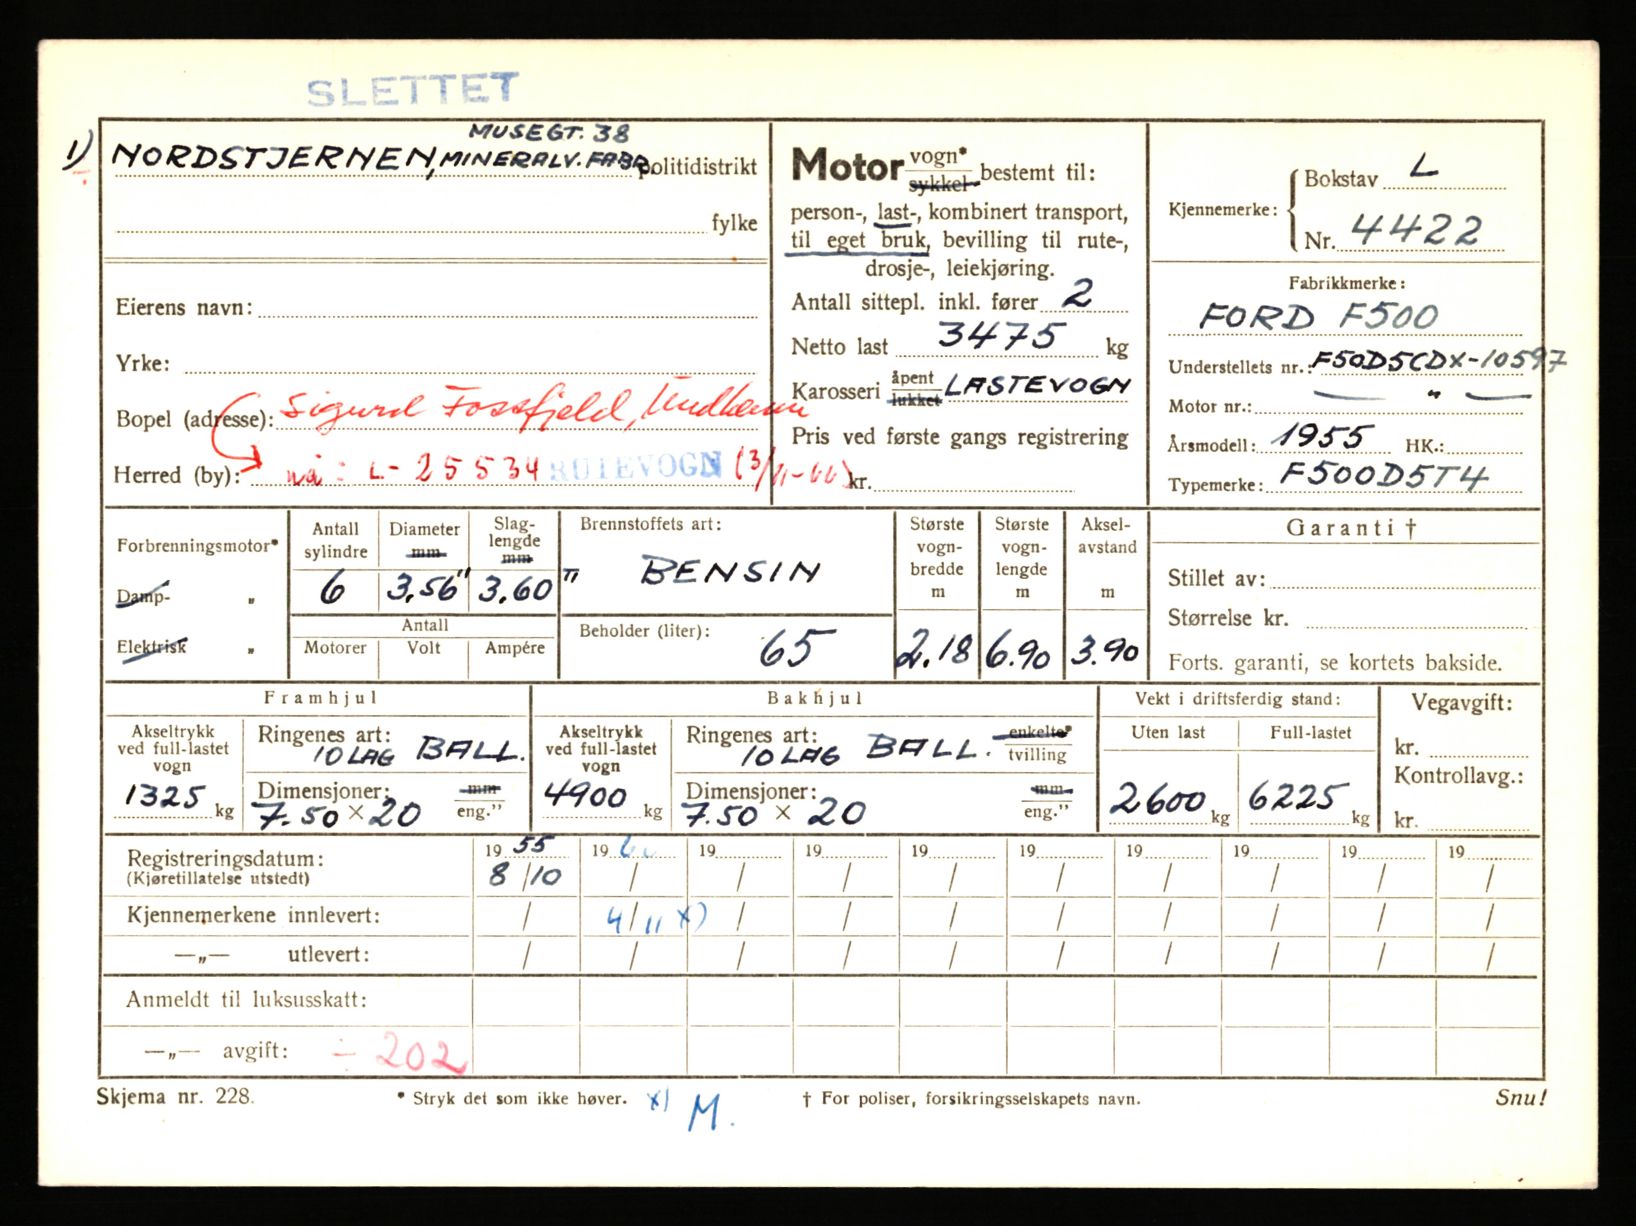 SLETTET
1) NORDSTJERNEN, MINERALV. FABR. politidistrikt
MUSEGT. 38
fylke
Eierens navn:
Yrke:
Bopel (adresse): Sigurd Fossfjeld,
Herred (by): nå: L-25534 RUTEVOGN (3/11-60)
Motor vogn* sykkel bestemt til:
person-, last-, kombinert transport,
til eget bruk, bevilling til rute-,
drosje-, leiekjøring.
Antall sittepl. inkl. fører 2
Netto last 3475 kg
Karosseri åpent lukket LASTEVOGN
Pris ved første gangs registrering
kr.
Kjennemerke: Bokstav L
Nr. 4422
Fabrikkmerke:
FORD F500
Understellets nr.: F50D5CDX-10597
Motor nr.: — " —
Årsmodell: 1955 HK.:
Typemerke: F500D5T4
Forbrenningsmotor*
Damp- "
Elektrisk "
Antall sylindre 6
Diameter mm 3.56"
Slag-lengde mm 3.60"
Antall
Motorer Volt Ampére
Brennstoffets art:
BENSIN
Beholder (liter): 65
Største vogn-bredde m 2.18
Største vogn-lengde m 6.90
Aksel-avstand m 3.90
Garanti †
Stillet av:
Størrelse kr.
Forts. garanti, se kortets bakside.
Framhjul
Akseltrykk ved full-lastet vogn
1325 kg
Ringenes art: 10 LAG BALL.
Dimensjoner: mm
7.50 × 20 eng."
Bakhjul
Akseltrykk ved full-lastet vogn
4900 kg
Ringenes art: 10 LAG BALL. enkelte* tvilling
Dimensjoner: mm
7.50 × 20 eng."
Vekt i driftsferdig stand:
Uten last Full-lastet
2600 kg 6225 kg
Vegavgift:
kr.
Kontrollavg.:
kr.
19 55 19 60 19 19 19 19 19 19 19 19
Registreringsdatum: 8/10 / / / / / / / / /
(Kjøretillatelse utstedt)
Kjennemerkene innlevert: / 4/11 x) / / / / / / / /
—„— utlevert: / / / / / / / / / /
Anmeldt til luksusskatt:
—„— avgift: - 202
Skjema nr. 228. * Stryk det som ikke høver. x) M. † For poliser, forsikringsselskapets navn. Snu!